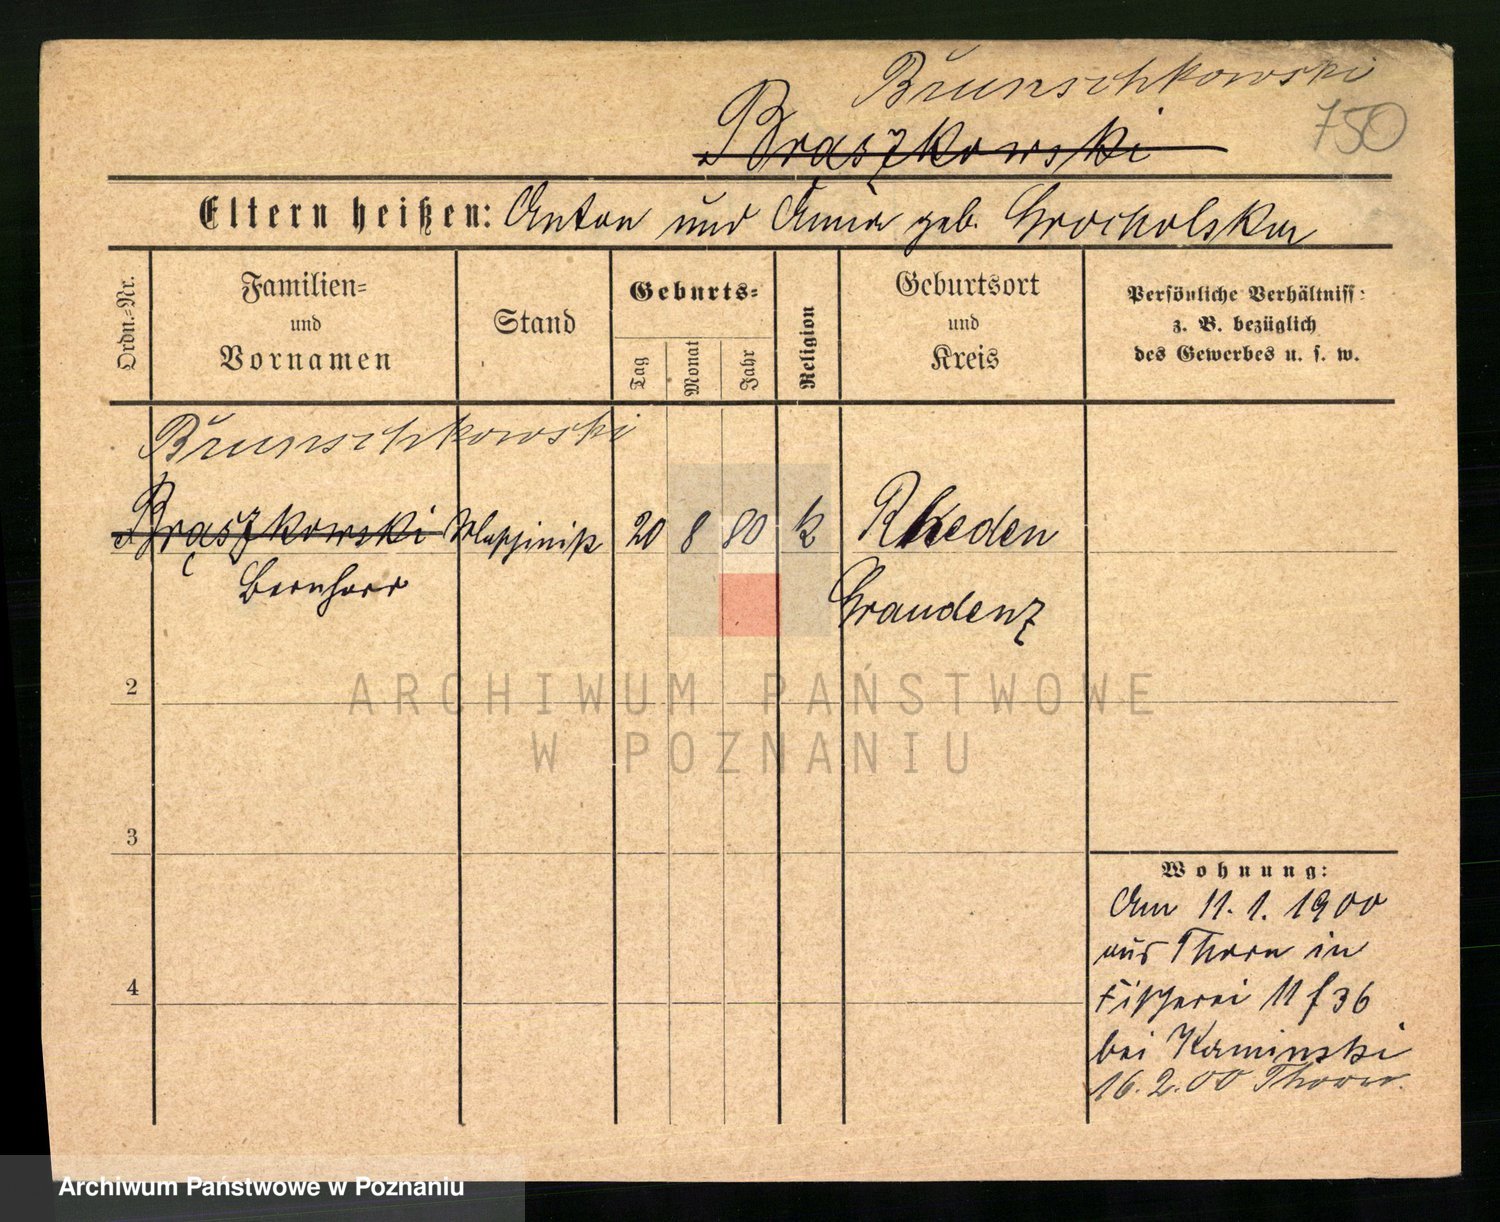 Brunschkowski
Brąszkowski
750
Eltern heißen: Anton und Anna geb. Grocholska
Ordn.-Nr.
Familien-
und
Vornamen
Stand
Geburts-
Tag
Monat
Jahr
Religion
Geburtsort
und
Kreis
Persönliche Verhältniss:
z. B. bezüglich
des Gewerbes u. s. w.
Brunschkowski
Brąszkowski
20 8 80 k Rheden
Bernhard
Graudenz
2
3
4
Wohnung:
Am 11. 1. 1900
aus Thorn in
Fischerei 11 f 36
bei Kaminski
16. 2. 00 Thorn.
ARCHIWUM PAŃSTWOWE
W POZNANIU
Archiwum Państwowe w Poznaniu